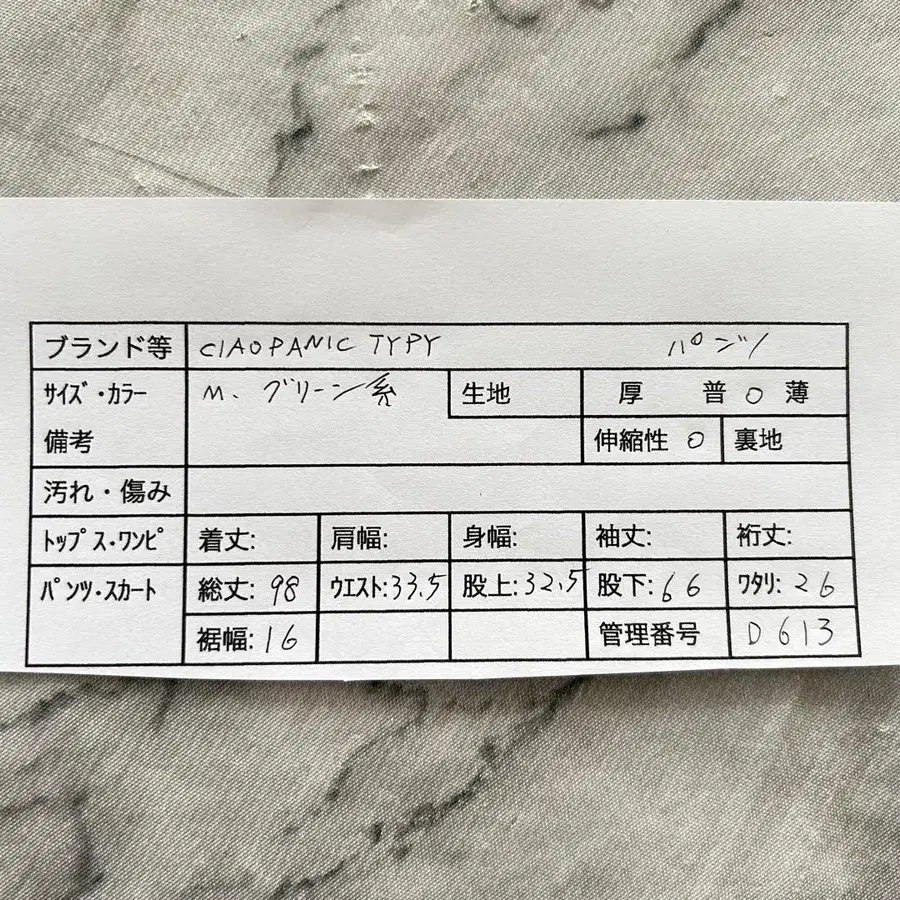 ブランド等 CIAOPANIC TYPY パンツ
サイズ・カラー M. グリーン系 生地 厚 普 ○ 薄
備考 伸縮性 ○ 裏地
汚れ・傷み
トップス・ワンピ 着丈: 肩幅: 身幅: 袖丈: 裄丈:
パンツ・スカート 総丈: 98 ウエスト: 33.5 股上: 32.5 股下: 66 ワタリ: 26
裾幅: 16 管理番号 D613